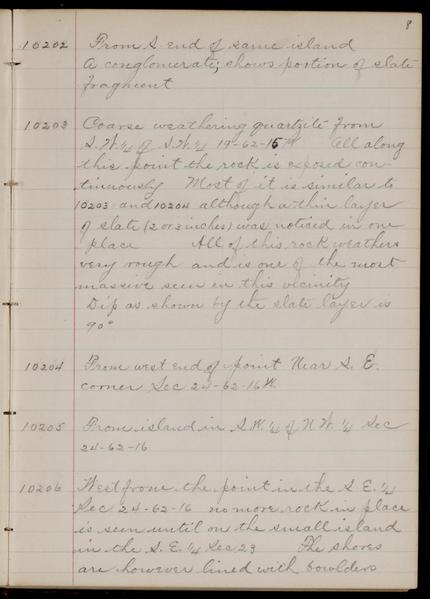 8
10202 From S end of same island
A conglomerate; shows portion of slate
fragment
10203 Coarse weathering quartzite from
S.W.¼ of S.W.¼ 19-62-15W All along
this point the rock is exposed con-
tinuously Most of it is similar to
10203 and 10204 although a thin layer
of slate (2 or 3 inches) was noticed in one
place All of this rock weathers
very rough and is one of the most
massive seen in this vicinity
Dip as shown by the slate layer is
90°
10204 From west end of point Near S.E.
corner Sec 24-62-16W.
10205 From island in S.W.¼ of N.W.¼ Sec
24-62-16
10206 West from the point in the S.E.¼
Sec 24-62-16 no more rock in place
is seen until on the small island
in the S.E.¼ Sec 23 The shores
are however lined with bowlders